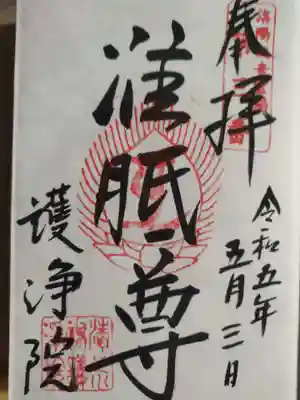 奉拝
令和五年
五月三日
准胝尊
護浄院